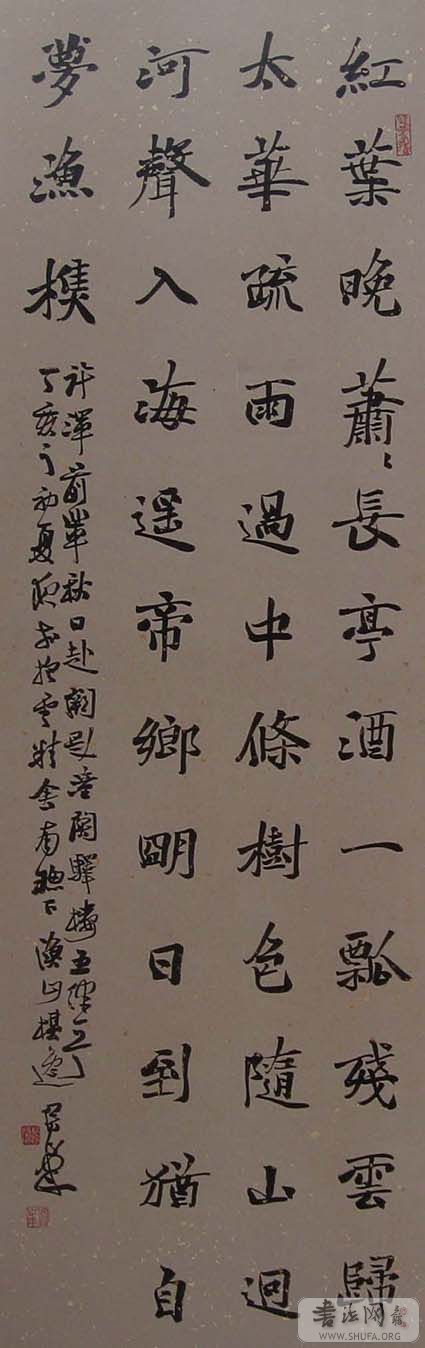 紅葉晚蕭〻長亭酒一瓢殘雲歸
太華疏雨過中條樹色隨山迥
河聲入海遥帝鄉朙日到猶自
夢漁樵
許渾前輩秋日赴闕題潼關驛樓五律之一
丁亥之初夏
書法网
WWW.SHUFA.ORG